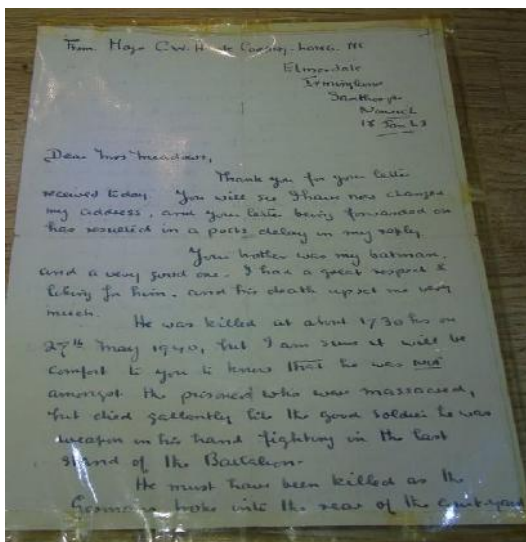 From Major C.W.H. Long-Price MC
Irmingland
Norwich
18 Jan 43
Dear Mrs Meadows,
Thank you for your letter
received today. You will see I have now changed
my address, and your letter being forwarded on
has resulted in a posts delay in my reply.
Your brother was my batman,
and a very good one. I had a great respect &
liking for him, and his death upset me very
much.
He was killed at about 1730 hrs on
27th May 1940, but I am sure it will be
comfort to you to know that he was NOT
amongst the prisoners who were massacred,
but died gallantly like the good soldier he was
weapon in his hand fighting in the last
stand of the Battalion.
He must have been killed as the
Germans broke into the rear of the courtyard